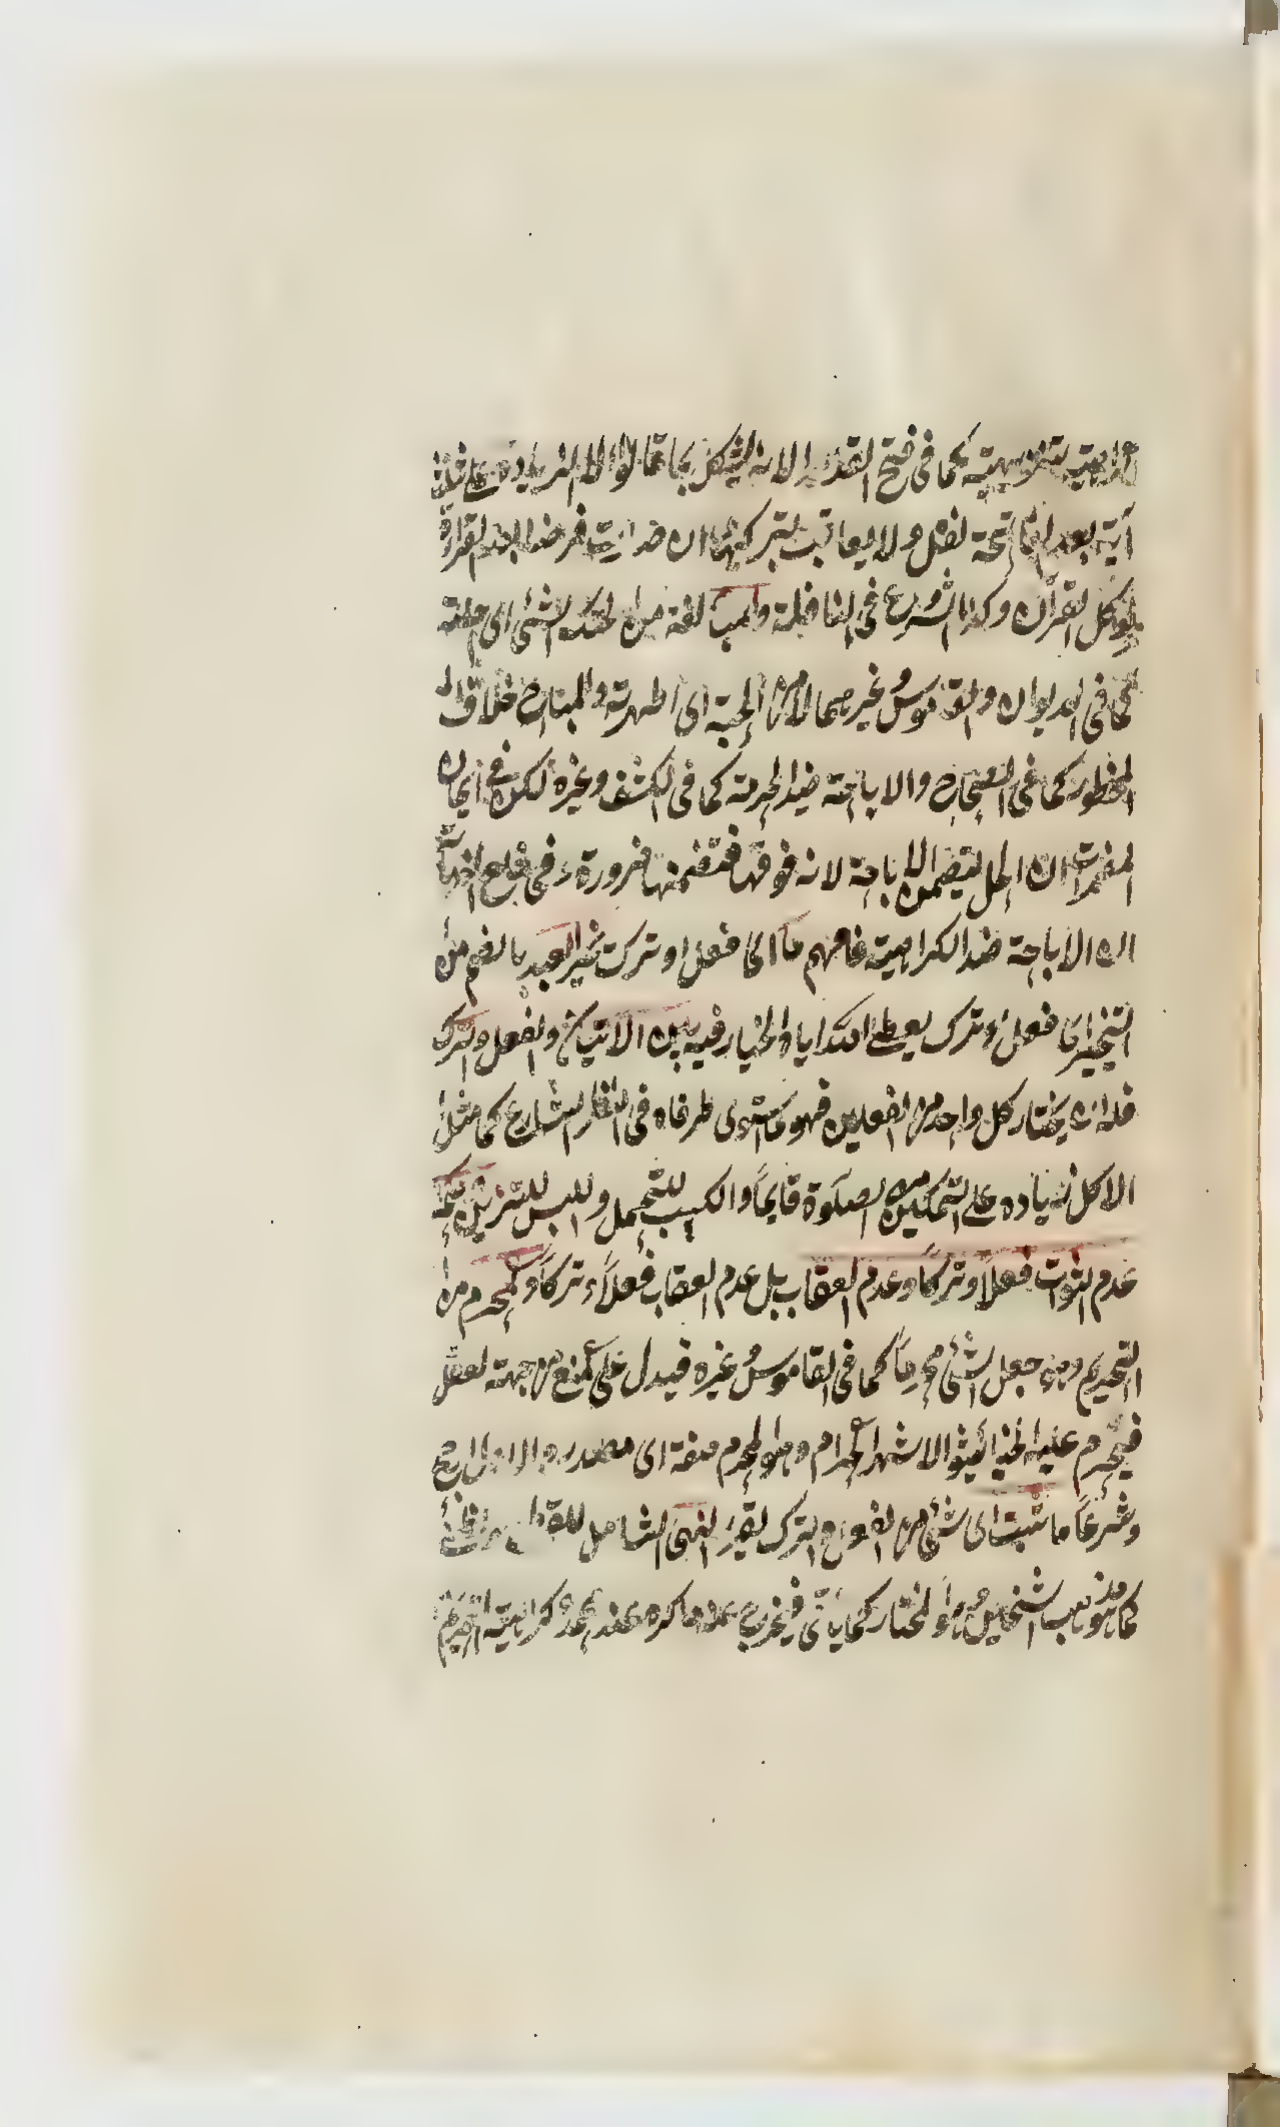 كراهية تنزيهية كما في فتح القدير الا انه يشكل بما قالوا ان الزيادة على ثلث
آية بعد الفاتحة نفل ولا يعاتب بتركهما ان ضرايت فرضا لانه القراءة
كل القرآن وكذا الشروع في النافلة والمباح لغة من ابحتك الشئ اى احللته
كما في الديوان والقاموس وغيرهما لا من الجبة اى اظهرته والمباح خلاف
المحظور كما في الصحاح والاباحة ضد الحرمة كما في الكشف وغيره لكن في ايمان
المضمرات ان الحل يتضمن الاباحة لانه فوقها فتضمنها ضرورة وفي خلع النهاية
ان الاباحة ضد الكراهية فافهم ما اى فعل او ترك خير العبد بالضم من
التخيير اى فعل وترك يعطى ابتداء اياه الخيار فيه بين الاتيان والفعل والترك
فله ان يختار كل واحد من الفعلين فهو ما استوى طرفاه في النظر الشارع كما مثل
الاكل زيادة على التمكين من الصلوة قايما والكسب للتجمل واللبس للتزين حكمه
عدم الثواب فعلا وتركا وعدم العقاب بل عدم العقاب فعلا وتركا والمحرم من
التحريم وهو جعل الشئ محرما كما في القاموس وغيره فيدل على المنع من جهة العقل
فيحرم عليه الخبائث والاشهر الحرام وهو المحرم صفة اى مصدر والاول ارجح
وشرعا ما ثبت اى شئ من الفعل والترك بقيد النهى الشامل للقطعى والظنى
كما هو مذهب الشيخين وهو المختار كما يأتى فيخرج عنه ما كره عند محمد كراهية التحريم